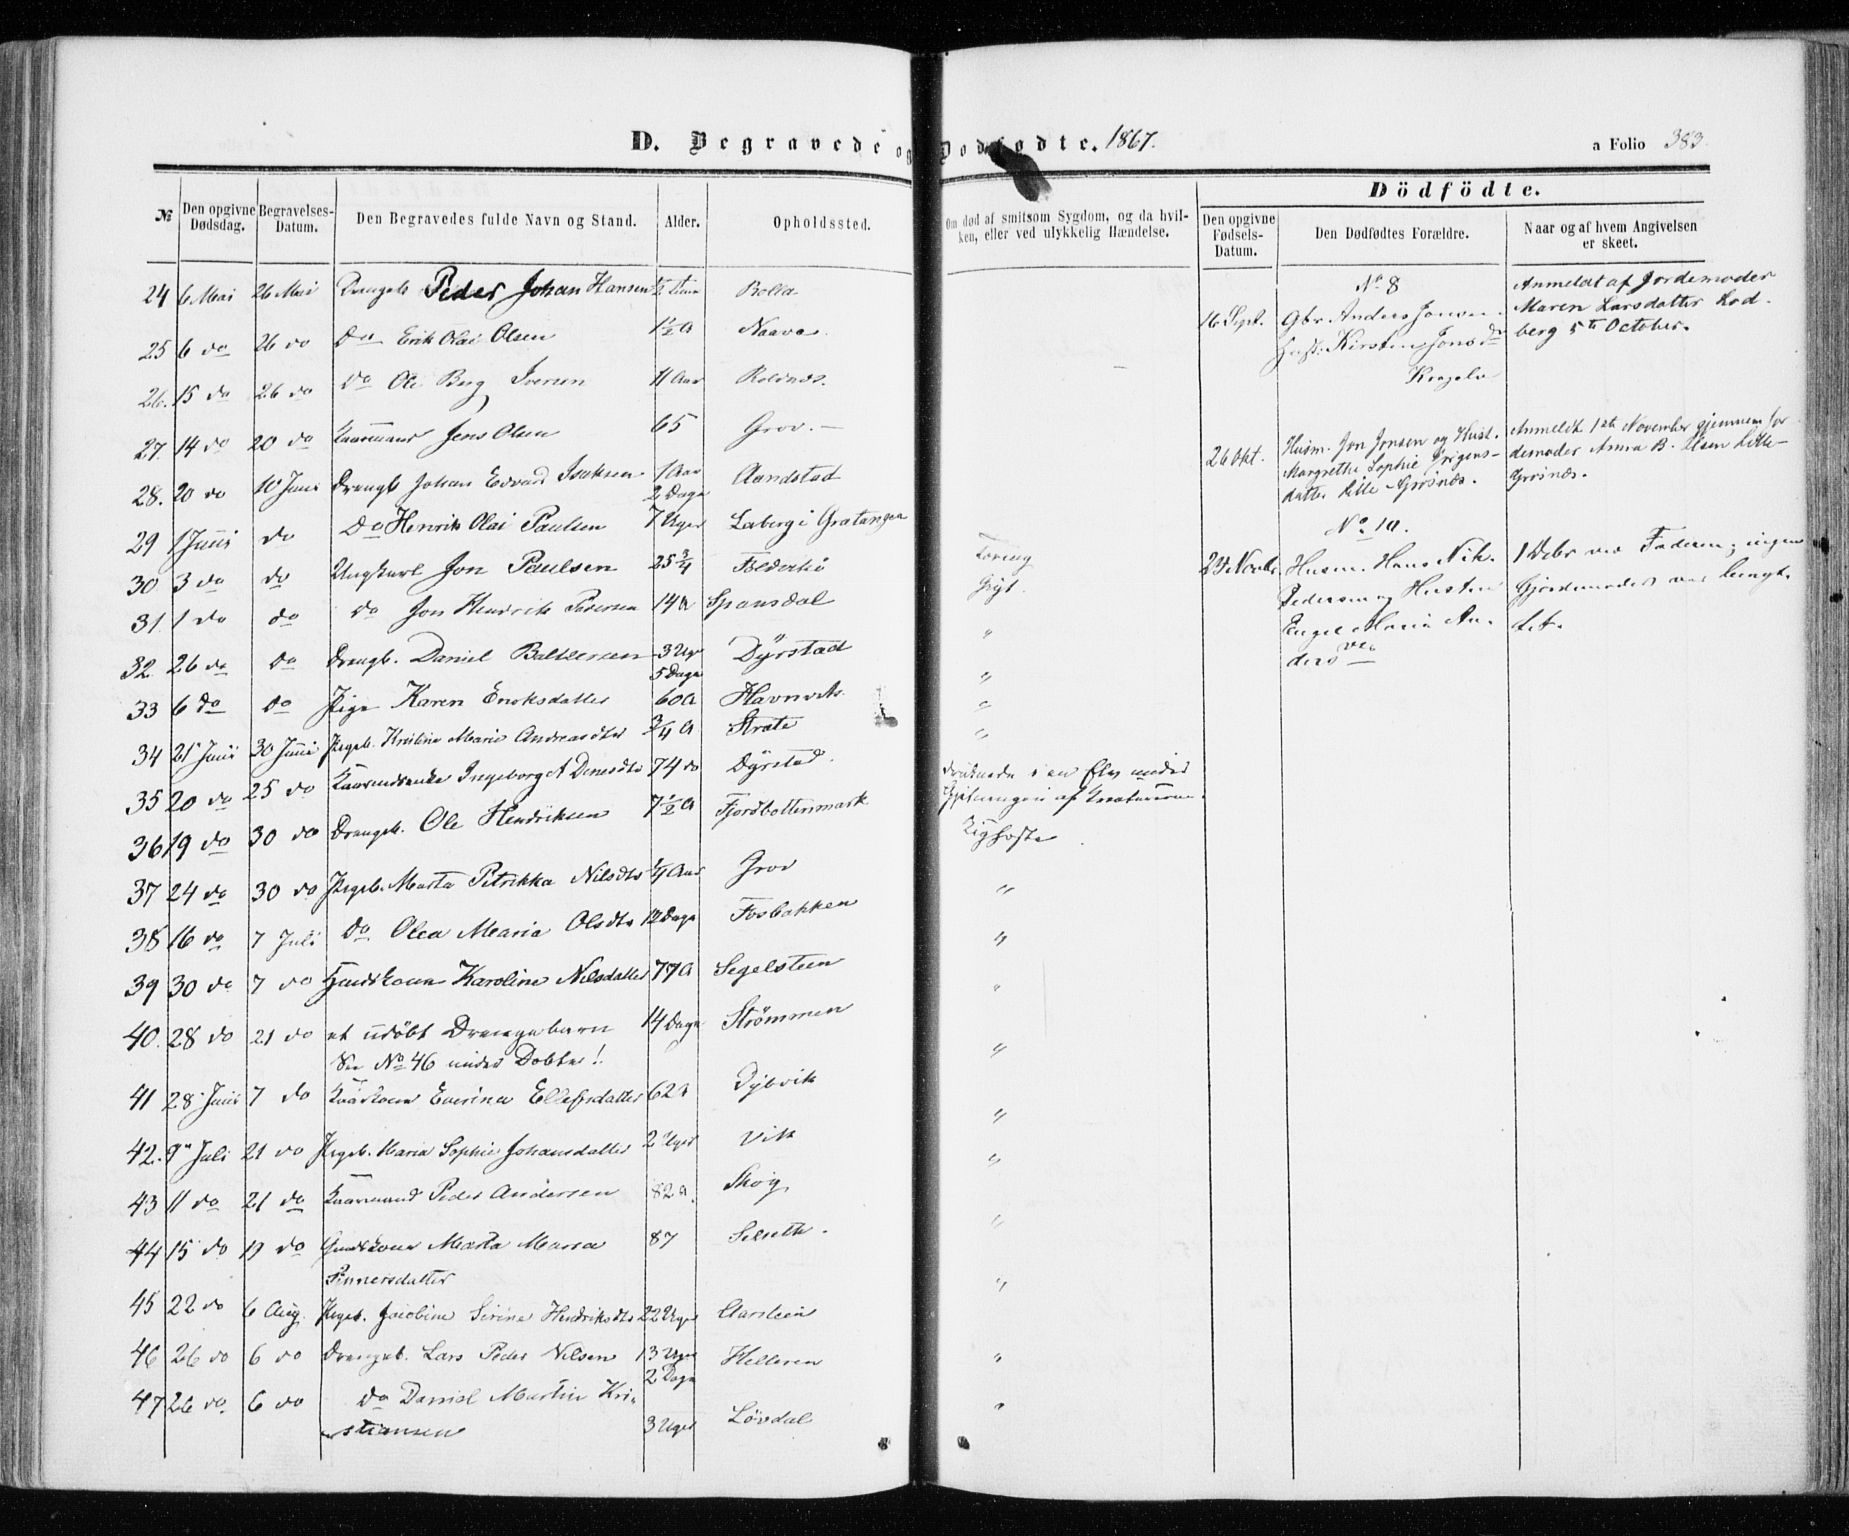 D. Begravede og Dødfødte. 1867.
a Folio 383.
Dödfödte.
№
Den opgivne Dødsdag.
Begravelses-Datum.
Den Begravedes fulde Navn og Stand.
Alder.
Opholdssted.
Om død af smitsom Sygdom, og da hvil-
ken, eller ved ulykkelig Hændelse.
Den opgivne Fødsels-Datum.
Den Dødfødtes Forældre.
Naar og af hvem Angivelsen
er skeet.
24 6 Mai 26 Mai Drengeb. Peder Johan Hansen ½ Time Bolla
25 6 do 26 do do Erik Olai Olsen 1½ A
26. 15 do 26 do do Ole Berg Iversen 11 Aar Roldnæs.
27. 14 do 20 do Kaarmand Jens Olsen 65 Grov.
28. 20 do 10 Juni Drengb. Johan Edvard Isaksen 1 Aar Aandstad
2 Dage
29 1 Juni do do Henrik Olai Paulsen 7 Uger Laberg i Gratangen
30 3 do do Ungkarl Jon Paulsen 25 ¾
31. 1 do do do Jon Hendrik Pedersen 14 A Spansdal
32. 26 do do Drengb. Daniel Baltsersen 3 Uger Dyrstad
5 Dage
33 6 do do Pige Karen Eriksdatter 60 A Havnvik
34 21 Juni 30 Juni Pigeb. Kristine Marie Andreasdtr ¾ A Strate
35 20 do 25 do Ingeborg A 74 do Dyrstad.
36 19 do 30 do Drengeb. Ole Hendriksen 7½ A Fjordbottenmark
37 24 do 30 do Pigeb. Marta Petrikka Nilsdtr ¼ Aar Grov
38 16 do 7 Juli do Olea Maria Olsdtr 12 Dage Fosbakken
39 30 do 7 do Karoline Nilsdatter 77 A Segelsteen
40. 28 do 21 do et udöbt Drengebarn 14 Dage Strømmen
See No 46 under Döbte!
41 28 Juni 7 do Everina Ellefsdatter 62 A Dybvik
42. 9 Juli 21 do Pigeb. Maria Sophie Johansdatter 2 Uger Vik
43 11 do 21 do Kaarmand Peder Andersen 82 A. Skog
44 15 do 19 do Marta Maria 87
Pinnersdatter
45 22 do 6 Aug. Pigeb. Jacobine Sirine Hendriksdtr 22 Uger
46 26 do 6 do Drengeb. Lars Peder Nilsen 13 Uger Helleren
2 Dage
47 26 do 6 do do Daniel Martin Kri-
stiansen 3 Uger Lövdal
druknede i en Elv under
Gjetningen af Kreaturerne.
Kighoste
No 8
16 Sept. Gbr. Anders Jonsen
Hust. Kirsten Jonsdr
Anmeldt af Jordemoder
Maren Larsdatter Rod-
berg 5te October.
26 Okt. Husm. Jon Jonsen og Hust.
Margrethe Sophie Jörgens-
datter Lille Grösnæs.
Anmeldt 1ste November gjennem Jor
demoder Anna B. Olsen Lille
Grösnæs.
No 10.
23 Novbr. Husm. Hans Nik.
Pedersen og Hustru
Engel Maria An-
dersdr
1 Debr ved Faderen; ingen
Gjordemoder var benyt-
tet.